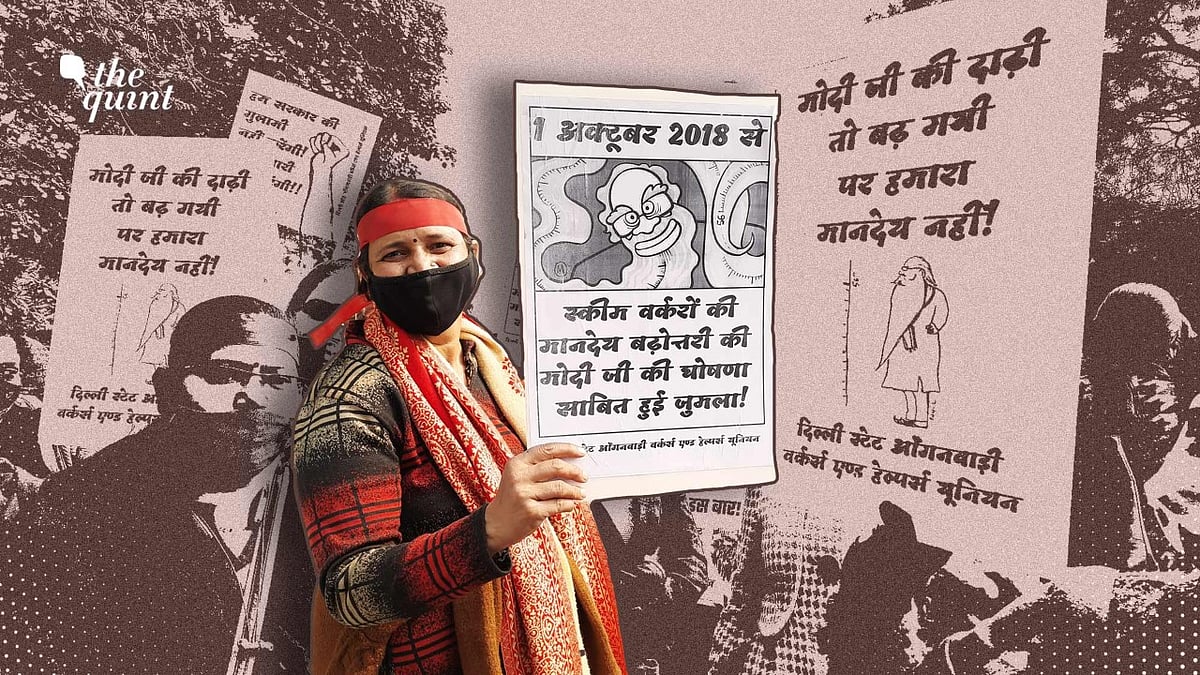 the
quint
हम सरकार की
गुलामी
मोदी जी की दाढ़ी
तो बढ़ गयी
पर हमारा
मानदेय नहीं!
दिल्ली स्टेट
वर्कर्स एण्ड हेल्पर्स
1 अक्टूबर 2018 से
56
स्कीम वर्करों की
मानदेय बढ़ोत्तरी की
मोदी जी की घोषणा
साबित हुई जुमला!
आँगनबाड़ी वर्कर्स एण्ड हेल्पर्स यूनियन
इस बार!
मोदी जी की दाढ़ी
तो बढ़ गयी
पर हमारा
मानदेय नहीं!
दिल्ली स्टेट आँगनबाड़ी
वर्कर्स एण्ड हेल्पर्स यूनियन